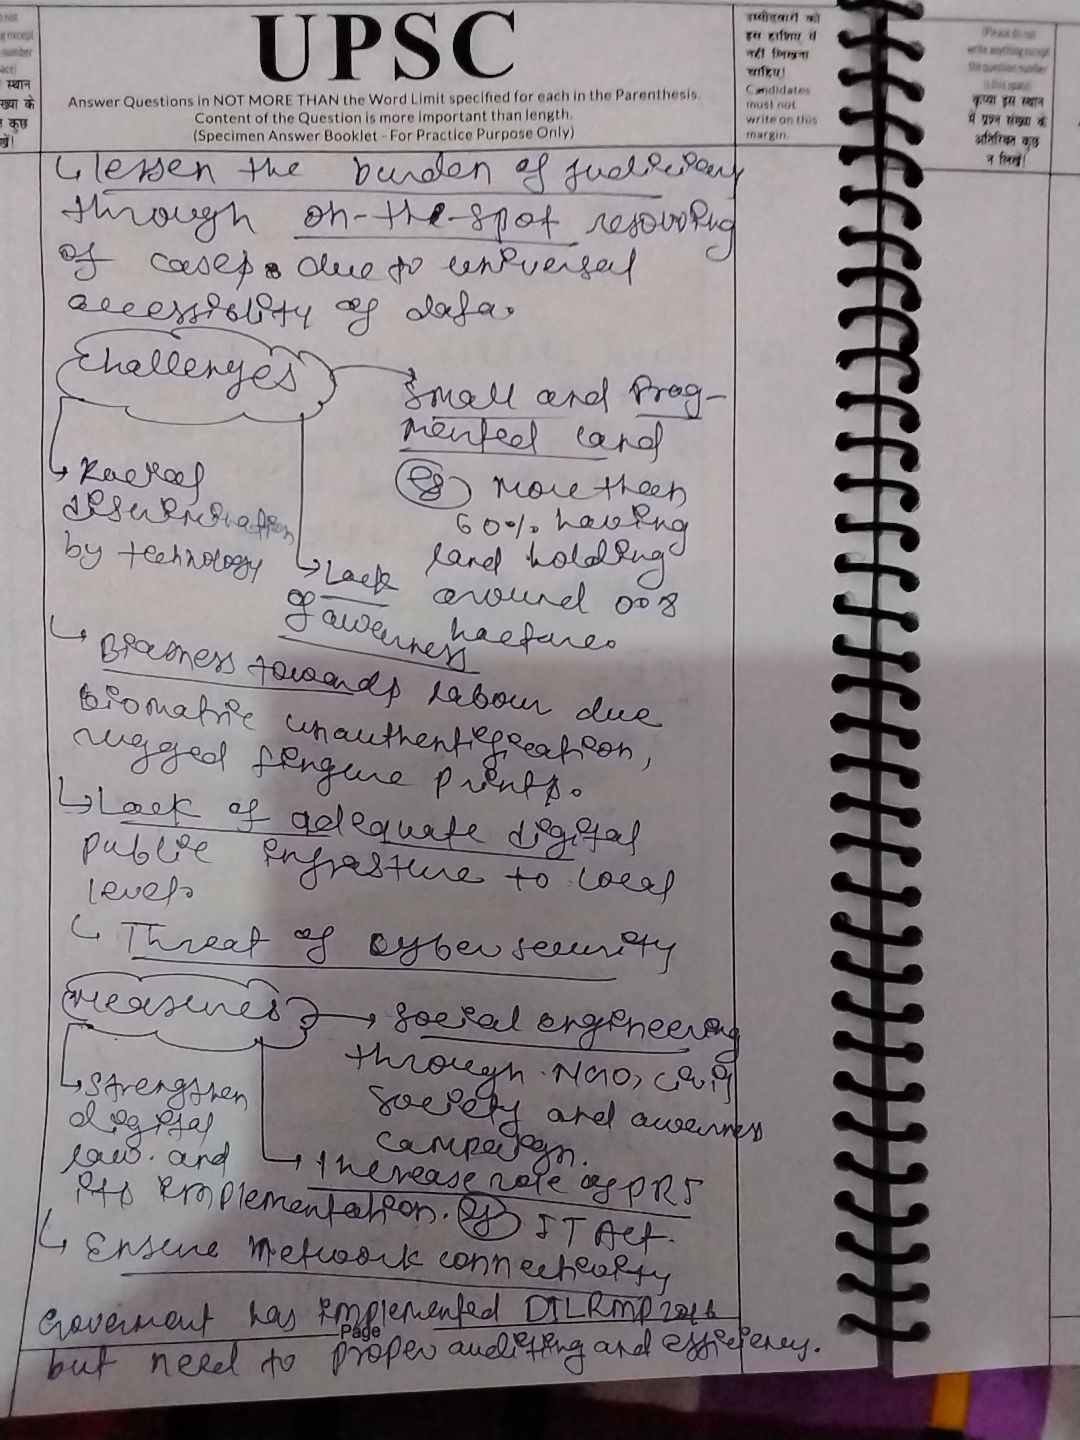 UPSC
Answer Questions in NOT MORE THAN the Word Limit specified for each in the Parenthesis.
Content of the Question is more important than length.
(Specimen Answer Booklet - For Practice Purpose Only)
उम्मीदवारों को
इस हाशिए में
नहीं लिखना
चाहिए।
Candidates
must not
write on this
margin.
(Please do not
write anything except
the question number
in this space)
कृपया इस स्थान
में प्रश्न संख्या के
अतिरिक्त कुछ
न लिखें।
lessen the burden of Judiciary
through on-the-spot resolving
of cases due to universal
accessiblity of data.
Challenges
Small and Frag-
mented land
eg more then
60% having
land holding
around 0.8
Racial
by technology
Lack
of awerness
Biasness towards labour due
biomatric unauthentification,
rugged fingure prints.
Lack of adequate digital
public infrasture to local
level.
Threat of cyber security
Measures
Social engineering
through NGO, civil
society and awerness
campaign.
Strengthen
digital
law and
its implementation. eg IT Act.
Increase role of PRI
Ensure Network connectivity
Goverment has implemented DILRMP
Page
but need to proper auditing and efficiency.